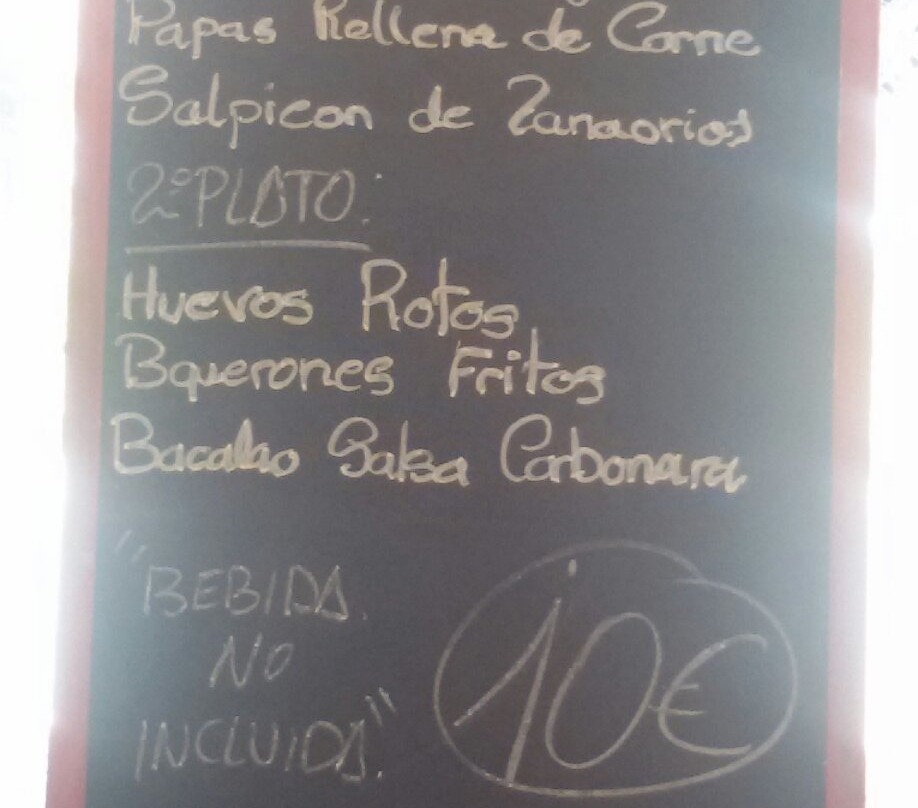 Papas Rellena de Carne
Salpicon de Zanaorias
2º PLATO:
Huevos Rotos
Bquerones Fritos
Bacalao Salsa Carbonara
"BEBIDA
NO
INCLUIDA"
10€